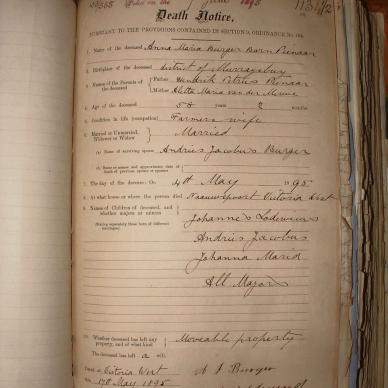 Filed on the 7 June 1895
Death Notice,
PURSUANT TO THE PROVISIONS CONTAINED IN SECTION 9, ORDINANCE No. 104.
1. Name of the deceased Anna Maria Burger Born Pienaar
2. Birthplace of the deceased District of Murraysburg
3. Names of the Parents of the deceased
Father Hendrik Petrus Pienaar
Mother Aletta Maria van der Merwe
4. Age of the deceased 58 years 2 months
5. Condition in life (occupation) Farmers wife
6. Married or Unmarried, Widower or Widow Married
(a) Name of surviving spouse Andries Jacobus Burger
(b) Name or names and approximate date of death of previous spouse or spouses
7. The day of the decease: On 4th May 1895
8. At what house or where the person died Naauwpoort Victoria West
9. Names of Children of deceased, and whether majors or minors Johannes Lodewicus
(Stating separately those born of different marriages) Andries Jacobus
Johanna Maria
All Majors
10. Whether deceased has left any property, and of what kind Moveable property
The deceased has left a will
Dated at Victoria West A J Burger
17th May 1895